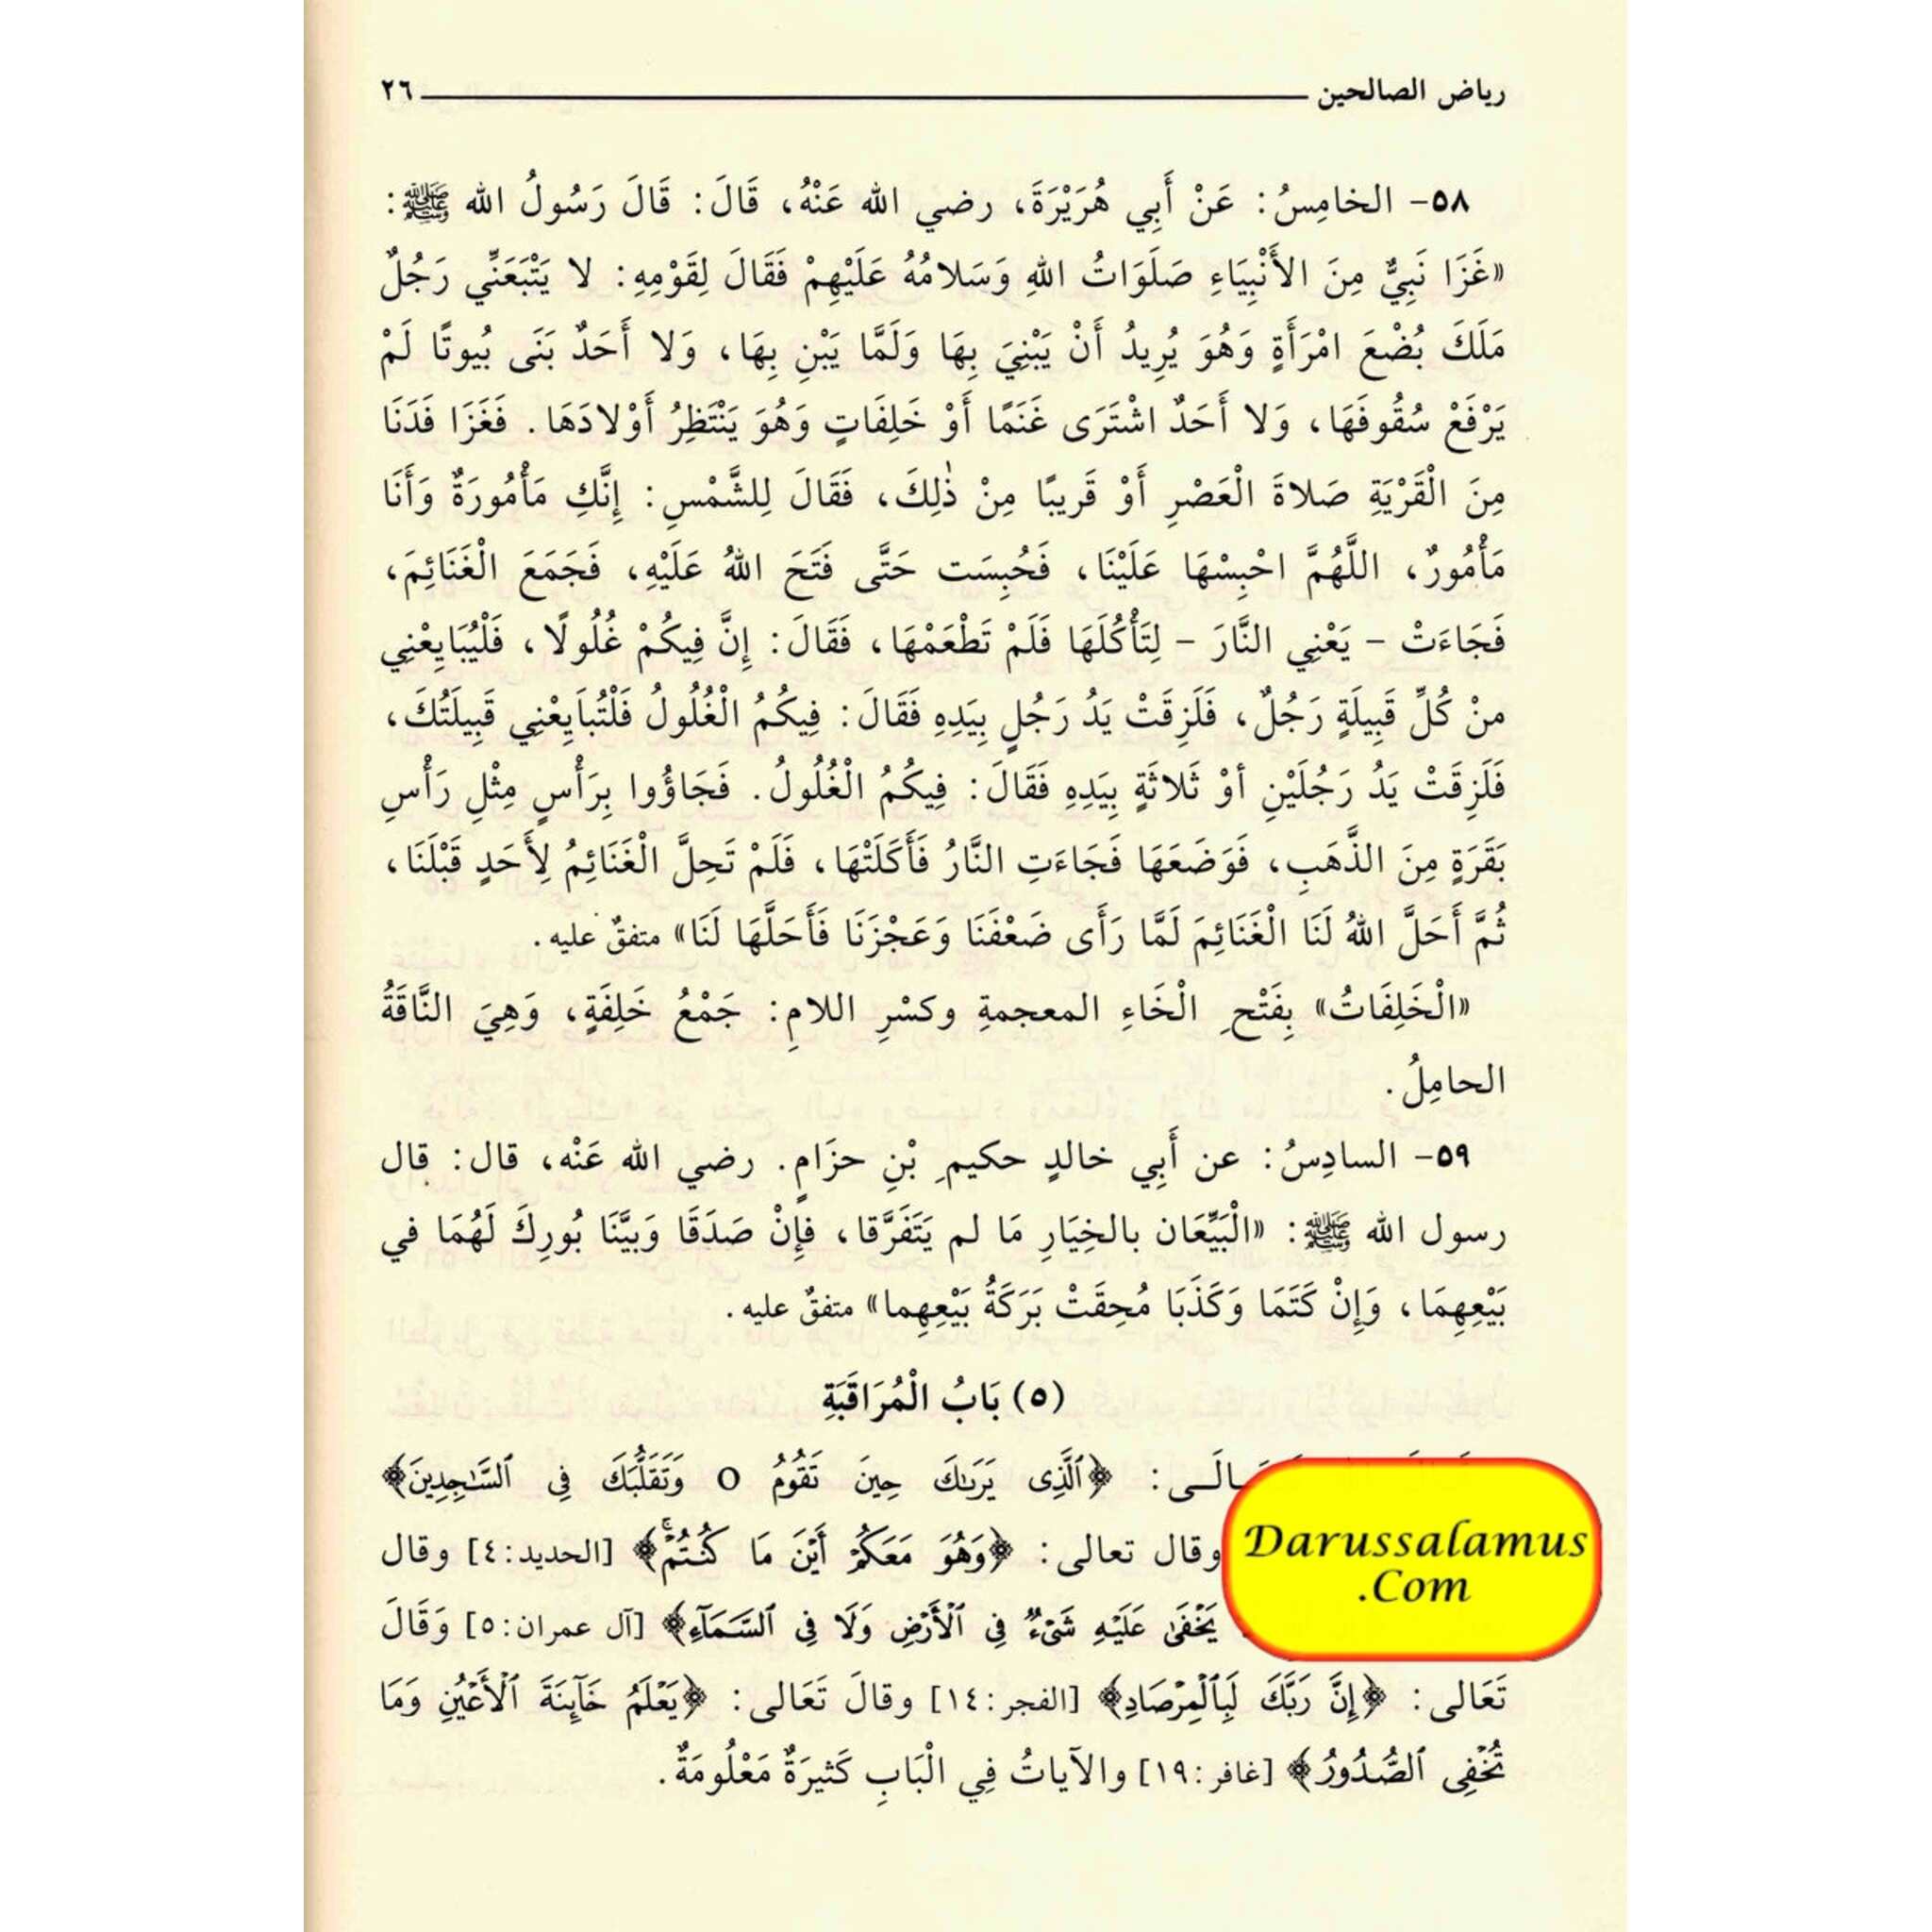 رياض الصالحين ٢٦
٥٨- الخامِسُ: عَنْ أَبِي هُرَيْرَةَ، رضي الله عَنْهُ، قَالَ: قَالَ رَسُولُ الله ﷺ:
«غَزَا نَبِيٌّ مِنَ الأَنْبِيَاءِ صَلَوَاتُ اللهِ وَسَلامُهُ عَلَيْهِمْ فَقَالَ لِقَوْمِهِ: لا يَتْبَعَنِّي رَجُلٌ
مَلَكَ بُضْعَ امْرَأَةٍ وَهُوَ يُرِيدُ أَنْ يَبْنِيَ بِهَا وَلَمَّا يَبْنِ بِهَا، وَلا أَحَدٌ بَنَى بُيوتًا لَمْ
يَرْفَعْ سُقُوفَهَا، وَلا أَحَدٌ اشْتَرَى غَنَمًا أَوْ خَلِفَاتٍ وَهُوَ يَنْتَظِرُ أَوْلادَهَا. فَغَزَا فَدَنَا
مِنَ الْقَرْيَةِ صَلاةَ الْعَصْرِ أَوْ قَرِيبًا مِنْ ذٰلِكَ، فَقَالَ لِلشَّمْسِ: إِنَّكِ مَأْمُورَةٌ وَأَنَا
مَأْمُورٌ، اللَّهُمَّ احْبِسْهَا عَلَيْنَا، فَحُبِسَت حَتَّى فَتَحَ اللهُ عَلَيْهِ، فَجَمَعَ الْغَنَائِمَ،
فَجَاءَتْ - يَعْنِي النَّارَ - لِتَأْكُلَهَا فَلَمْ تَطْعَمْهَا، فَقَالَ: إِنَّ فِيكُمْ غُلُولًا، فَلْيُبَايِعْنِي
منْ كُلِّ قَبِيلَةٍ رَجُلٌ، فَلَزِقَتْ يَدُ رَجُلٍ بِيَدِهِ فَقَالَ: فِيكُمُ الْغُلُولُ فَلْتُبَايِعْنِي قَبِيلَتُكَ،
فَلَزِقَتْ يَدُ رَجُلَيْنِ أوْ ثَلاثَةٍ بِيَدِهِ فَقَالَ: فِيكُمُ الْغُلُولُ. فَجَاؤُوا بِرَأْسٍ مِثْلِ رَأْسِ
بَقَرَةٍ مِنَ الذَّهَبِ، فَوَضَعَهَا فَجَاءَتِ النَّارُ فَأَكَلَتْهَا، فَلَمْ تَحِلَّ الْغَنَائِمُ لِأَحَدٍ قَبْلَنَا،
ثُمَّ أَحَلَّ اللهُ لَنَا الْغَنَائِمَ لَمَّا رَأَى ضَعْفَنَا وَعَجْزَنَا فَأَحَلَّهَا لَنَا» متفقٌ عليه.
«الْخَلِفَاتُ» بِفَتْحِ الْخَاءِ المعجمةِ وكسْرِ اللامِ: جَمْعُ خَلِفَةٍ، وَهِيَ النَّاقَةُ
الحامِلُ.
٥٩- السادِسُ: عن أَبِي خالدٍ حكيمِ بْنِ حزَامٍ. رضي الله عَنْه، قال: قال
رسول الله ﷺ: «الْبَيِّعَان بالخِيَارِ مَا لم يَتَفَرَّقا، فإِنْ صَدَقَا وَبَيَّنَا بُورِكَ لَهُمَا في
بَيْعِهِمَا، وَإِنْ كَتَمَا وَكَذَبَا مُحِقَتْ بَرَكَةُ بَيْعِهِما» متفقٌ عليه.
(٥) بَابُ الْمُرَاقَبَةِ
: ﴿ٱلَّذِى يَرَىٰكَ حِينَ تَقُومُ ٥ وَتَقَلُّبَكَ فِى ٱلسَّـٰجِدِينَ﴾
وقال تعالى: ﴿وَهُوَ مَعَكُمْ أَيْنَ مَا كُنتُمْ ۚ﴾ [الحديد:٤] وقال
يَخْفَىٰ عَلَيْهِ شَىْءٌ فِى ٱلْأَرْضِ وَلَا فِى ٱلسَّمَآءِ﴾ [آل عمران:٥] وَقَالَ
تَعَالى: ﴿إِنَّ رَبَّكَ لَبِٱلْمِرْصَادِ﴾ [الفجر:١٤] وقالَ تَعَالى: ﴿يَعْلَمُ خَآئِنَةَ ٱلْأَعْيُنِ وَمَا
تُخْفِى ٱلصُّدُورُ﴾ [غافر:١٩] والآياتُ فِي الْبَابِ كَثيرَةٌ مَعْلُومَةٌ.
Darussalamus
.Com